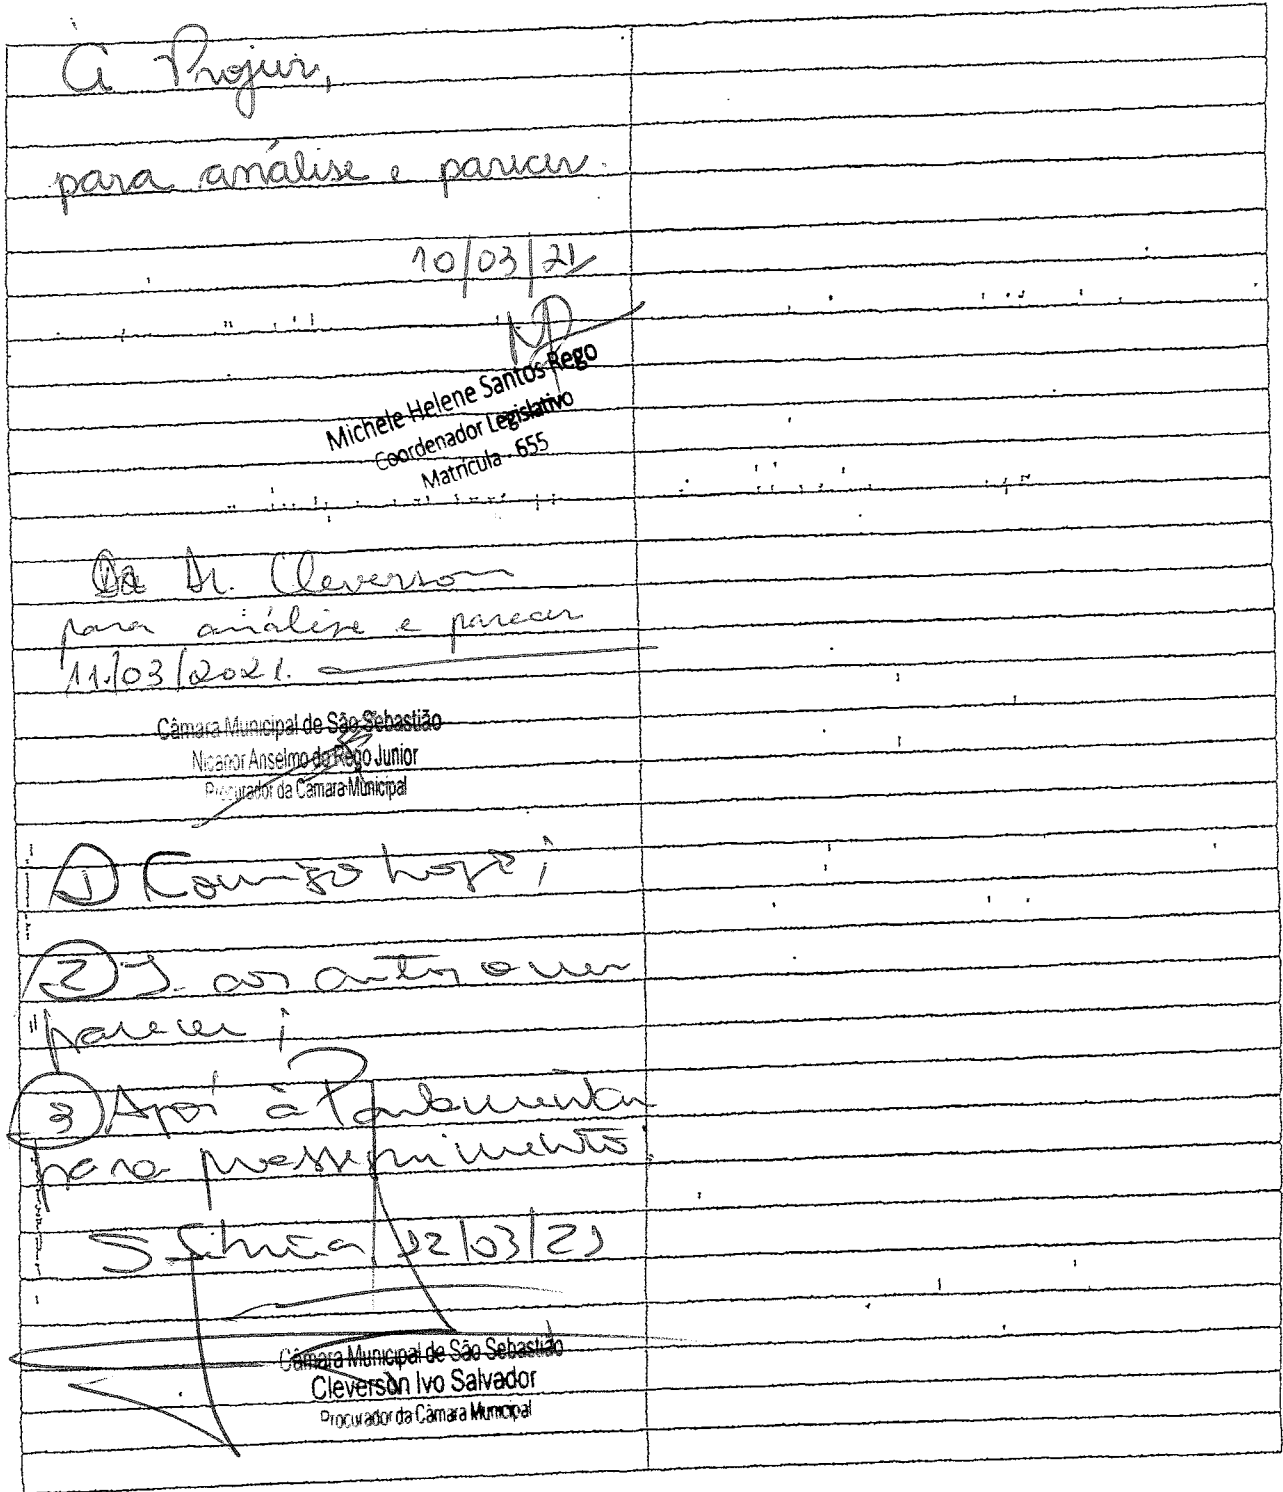 À Projur,
para análise e parecer.
10/03/21
Michele Helene Santos Rego
Coordenador Legislativo
Matrícula - 655
Dr. Cleverson
para análise e parecer
11/03/2021.
Câmara Municipal de São Sebastião
Nicanor Anselmo do Rego Junior
Procurador da Câmara Municipal
1) Comigo hoje;
2) J. aos autos o meu
parecer;
3) Após à Parlamentar
para prosseguimento
12/03/21
Câmara Municipal de São Sebastião
Cleverson Ivo Salvador
Procurador da Câmara Municipal